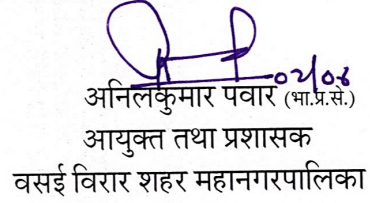 ०२/०६
अनिलकुमार पवार (भा.प्र.से.)
आयुक्त तथा प्रशासक
वसई विरार शहर महानगरपालिका